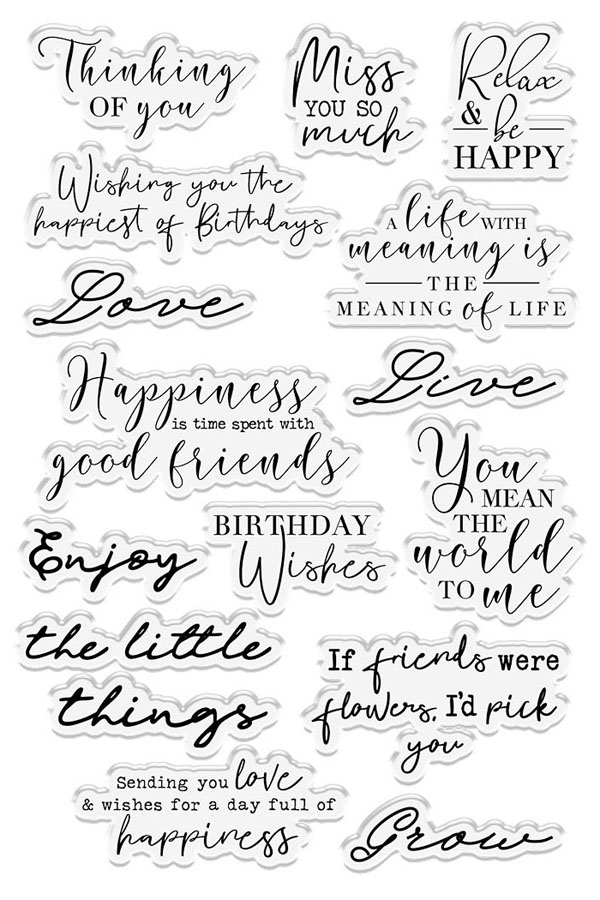 Thinking
OF you
Miss
YOU SO
much
Relax
& be
HAPPY
Wishing you the
happiest of Birthdays
A life WITH
meaning is
THE
MEANING of LIFE
Love
Happiness
is time spent with
good friends
Live
You
MEAN
THE
world
TO me
Enjoy
BIRTHDAY
Wishes
the little
things
If friends were
flowers, I'd pick
you
Sending you love
& wishes for a day full of
happiness
Grow